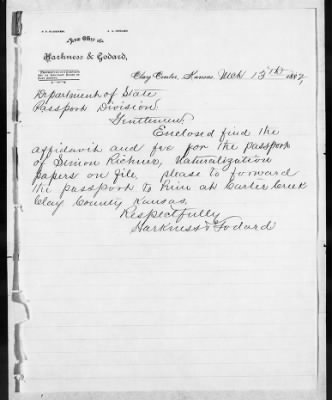 Law Office of
Harkness & Godard,
Clay Center, Kansas, Mch 15th 1892,
Department of State
Passport Division
Gentlemen
Enclosed find the
affidavit and fee for the passport
of Simon Naturalization
papers on file, please to forward
the passport to him at Carter Creek
Clay County Kansas,
Respectfully
Harkness & Godard